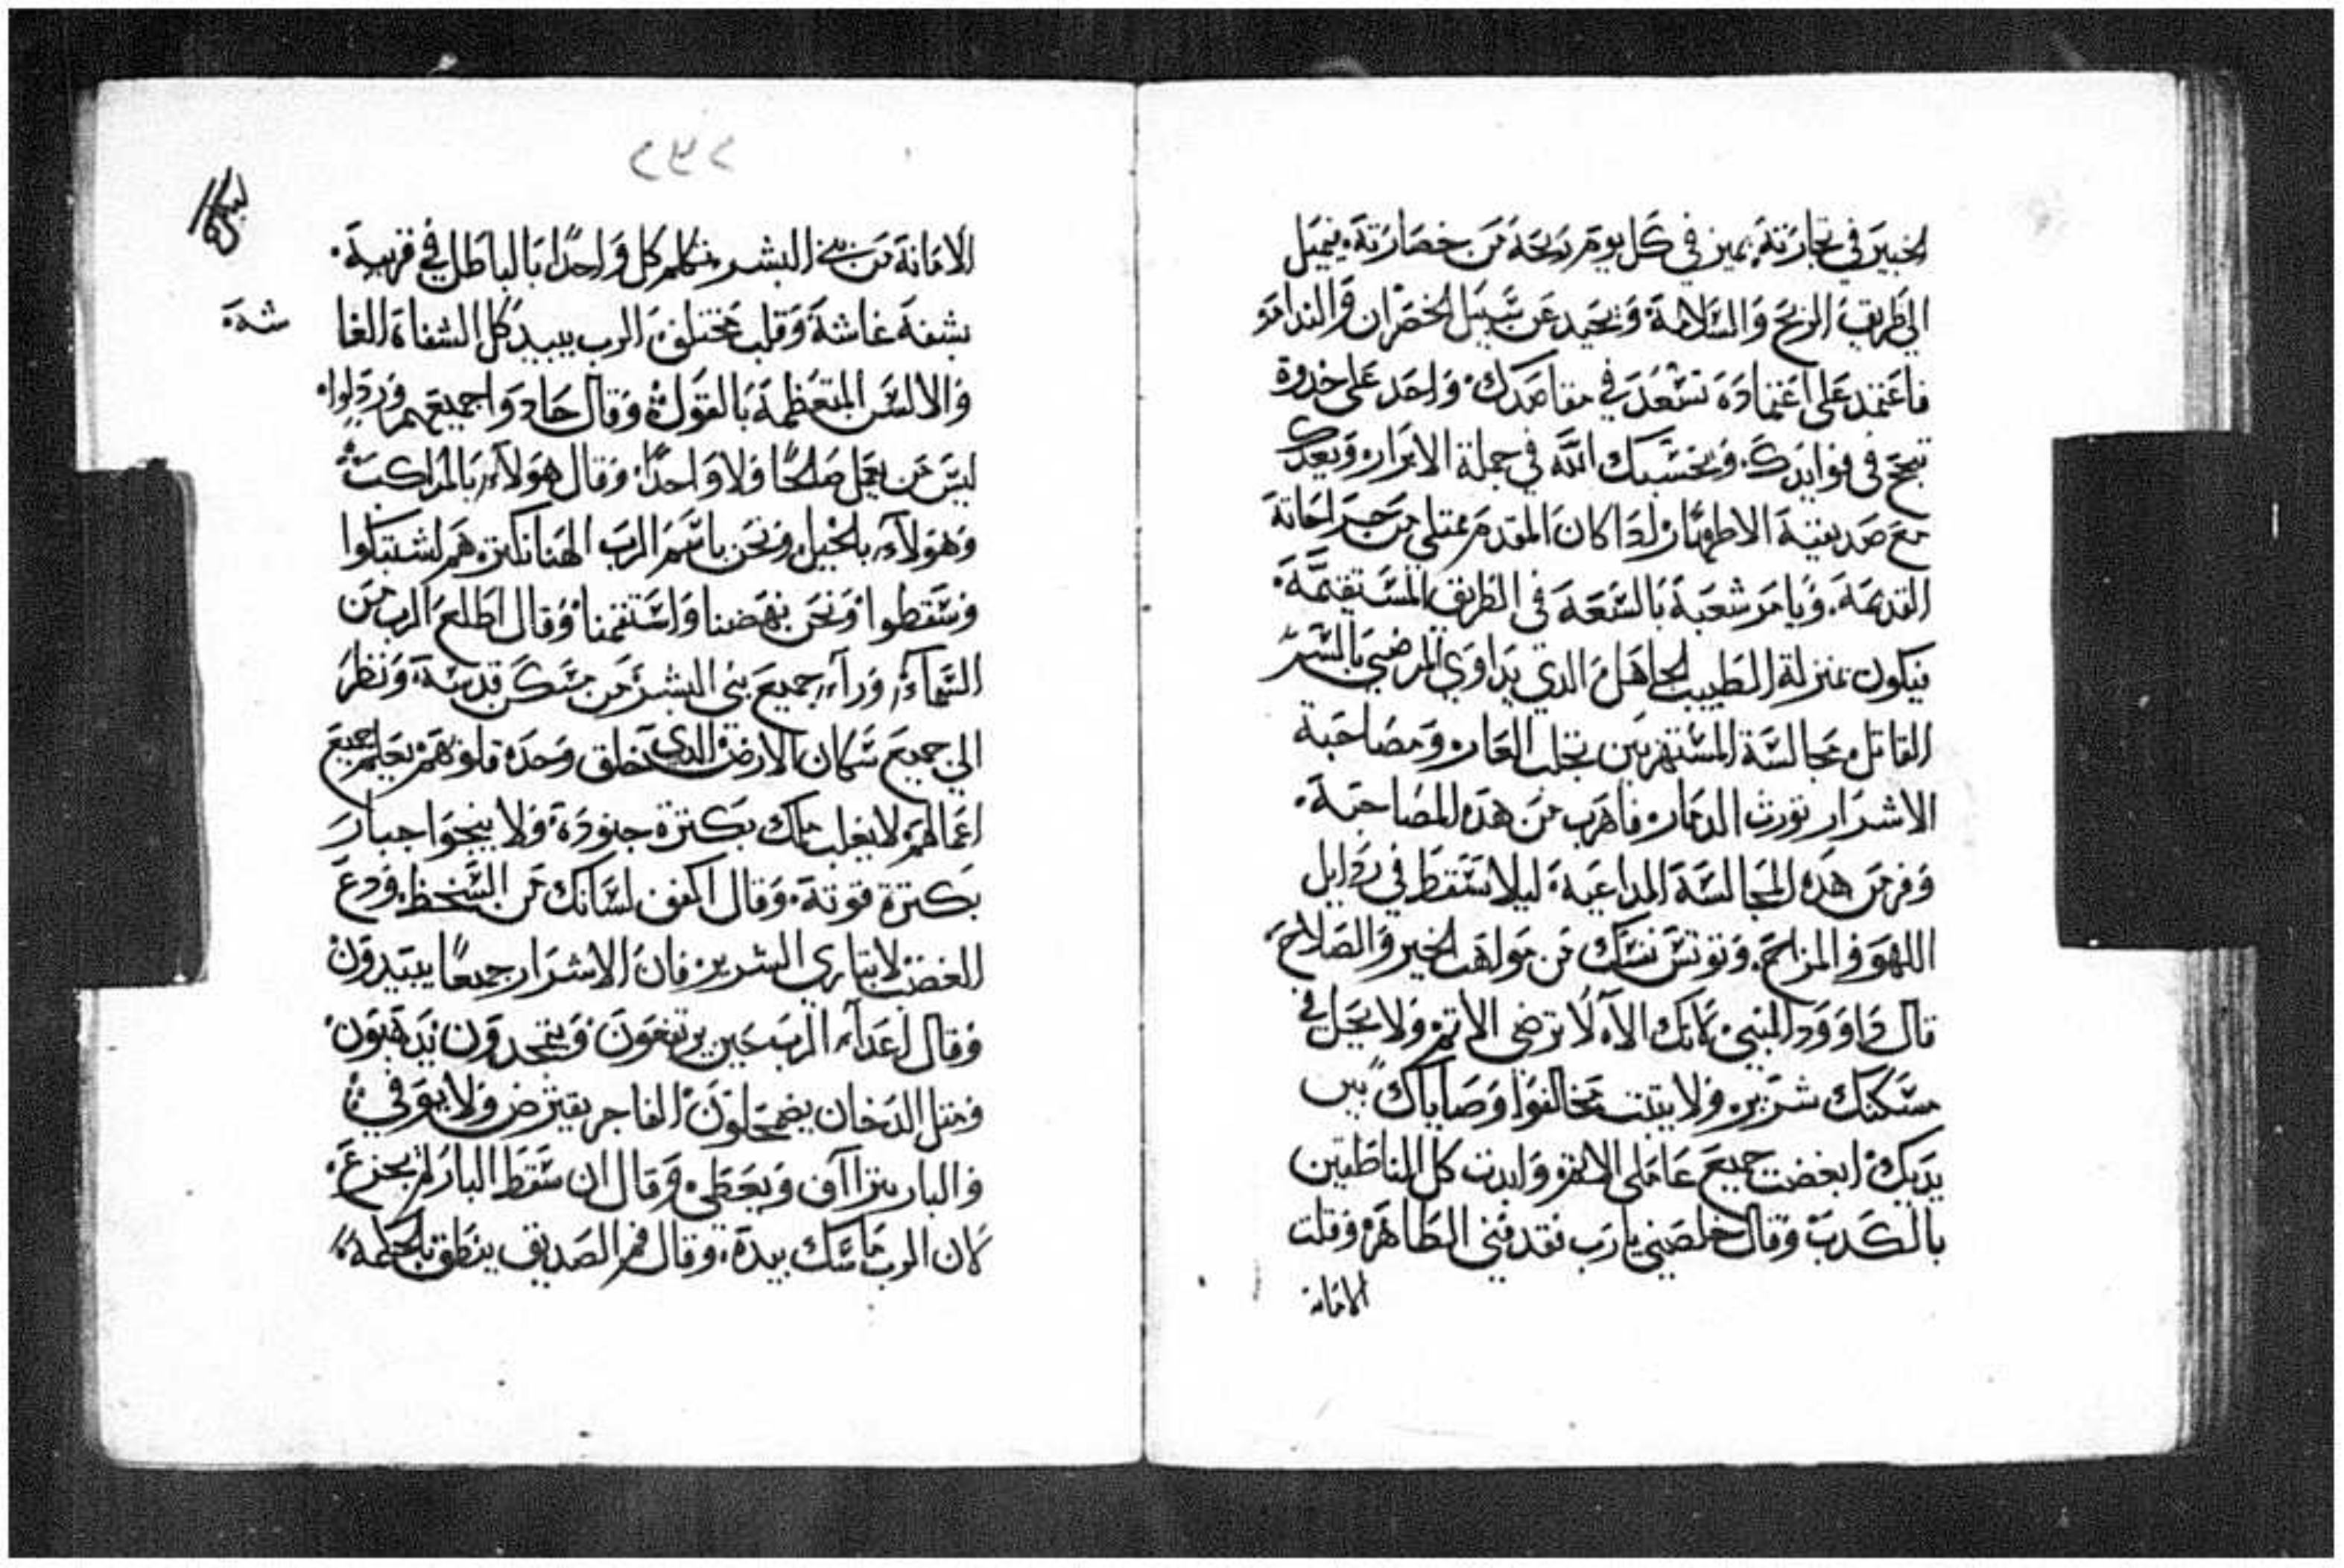 الخبير في تجارته يميز في كل يوم ربحه من خصارته فيميل
الي طريق الربح والسلامة ويحيد عن سبيل الخصران والندامة
فاعتمد علي اعتماده تسعد في مقاصدك واحد علي خدوة
تنجح في فوايدك ويحسبك الله في جملة الابرار ويعدك
مع صديقية الاطهار ادا كان المقدم ممتلي من جراحاته
القديمة ويامر شعبه بالسعة في الطريق المستقيمة
فيكون بمنزلة الطبيب الجاهل الدي يداوي المرضي بالسم
القاتل مجالسة المستهزيين تجلب العار ومصاحبة
الاشرار تورث الدمار فاهرب من هده المصاحبة
وفر من هده المجالسة المداعبة ليلا تسقط في ردايل
اللهو والمزاح وتوتس نفسك من مواهب الخير والصلاح
قال داوود النبي لانك الاه لا ترضي الاتم ولا يحل في
مسكنك شرير ولا يتبت مخالفوا وصاياك بين
يديك ابغضت جميع عاملي الاتم وابدت كل الناطقين
بالكدب وقال خلصني يارب فقد فني الطاهر وقلت
الامانة
الامانة من بني البشر متكلم كل واحدا بالباطل في قريبه
بشفة غاشة وقلب مختلف الرب يبيد كل الشفاة الغا
شة
والالسن المتعظمة بالقول وقال حادوا جميعهم وردلوا
ليس من يعمل صلاحا ولا واحدا وقال هولاء بالمراكب
وهولاء بالخيل ونحن باسم الرب الهنا نكتر هم اشتبكوا
وسقطوا ونحن نهضنا واستقمنا وقال اطلع الرب من
السماء وراء جميع بني البشر من مسكن قدسه ونظر
الي جميع سكان الارض الدي خلق وحده قلوبهم يعلم جميع
اعمالهم لا يغلب ملك بكترة جنوده ولا ينجوا جبار
بكترة قوته وقال اكفف لسانك من السخط ودع
الغضب لا تباري الشرير فان الاشرار جميعا يبيدون
وقال اعداء الرب حين يرتفعون ويتمجدون يدهبون
ومتل الدخان يضمحلون الفاجر يقترض ولا يوفي
والبار يتراآف ويعطي وقال ان سقط البار لم يجزع
لان الرب ماسك بيده وقال فم الصديق ينطق بالحكمة